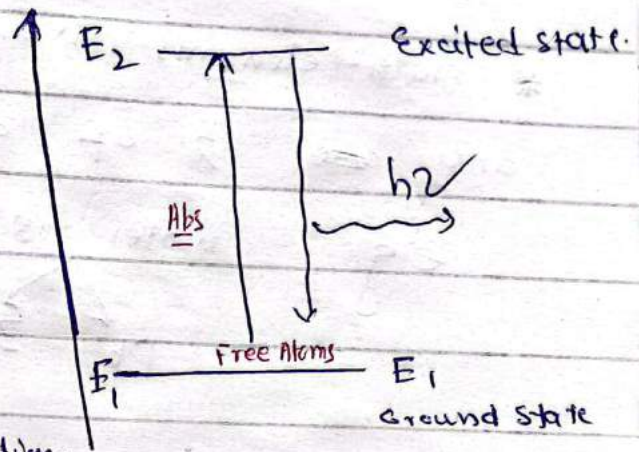 E2 Excited state.
hν
Abs
Free Atoms
E1 E1
Ground State